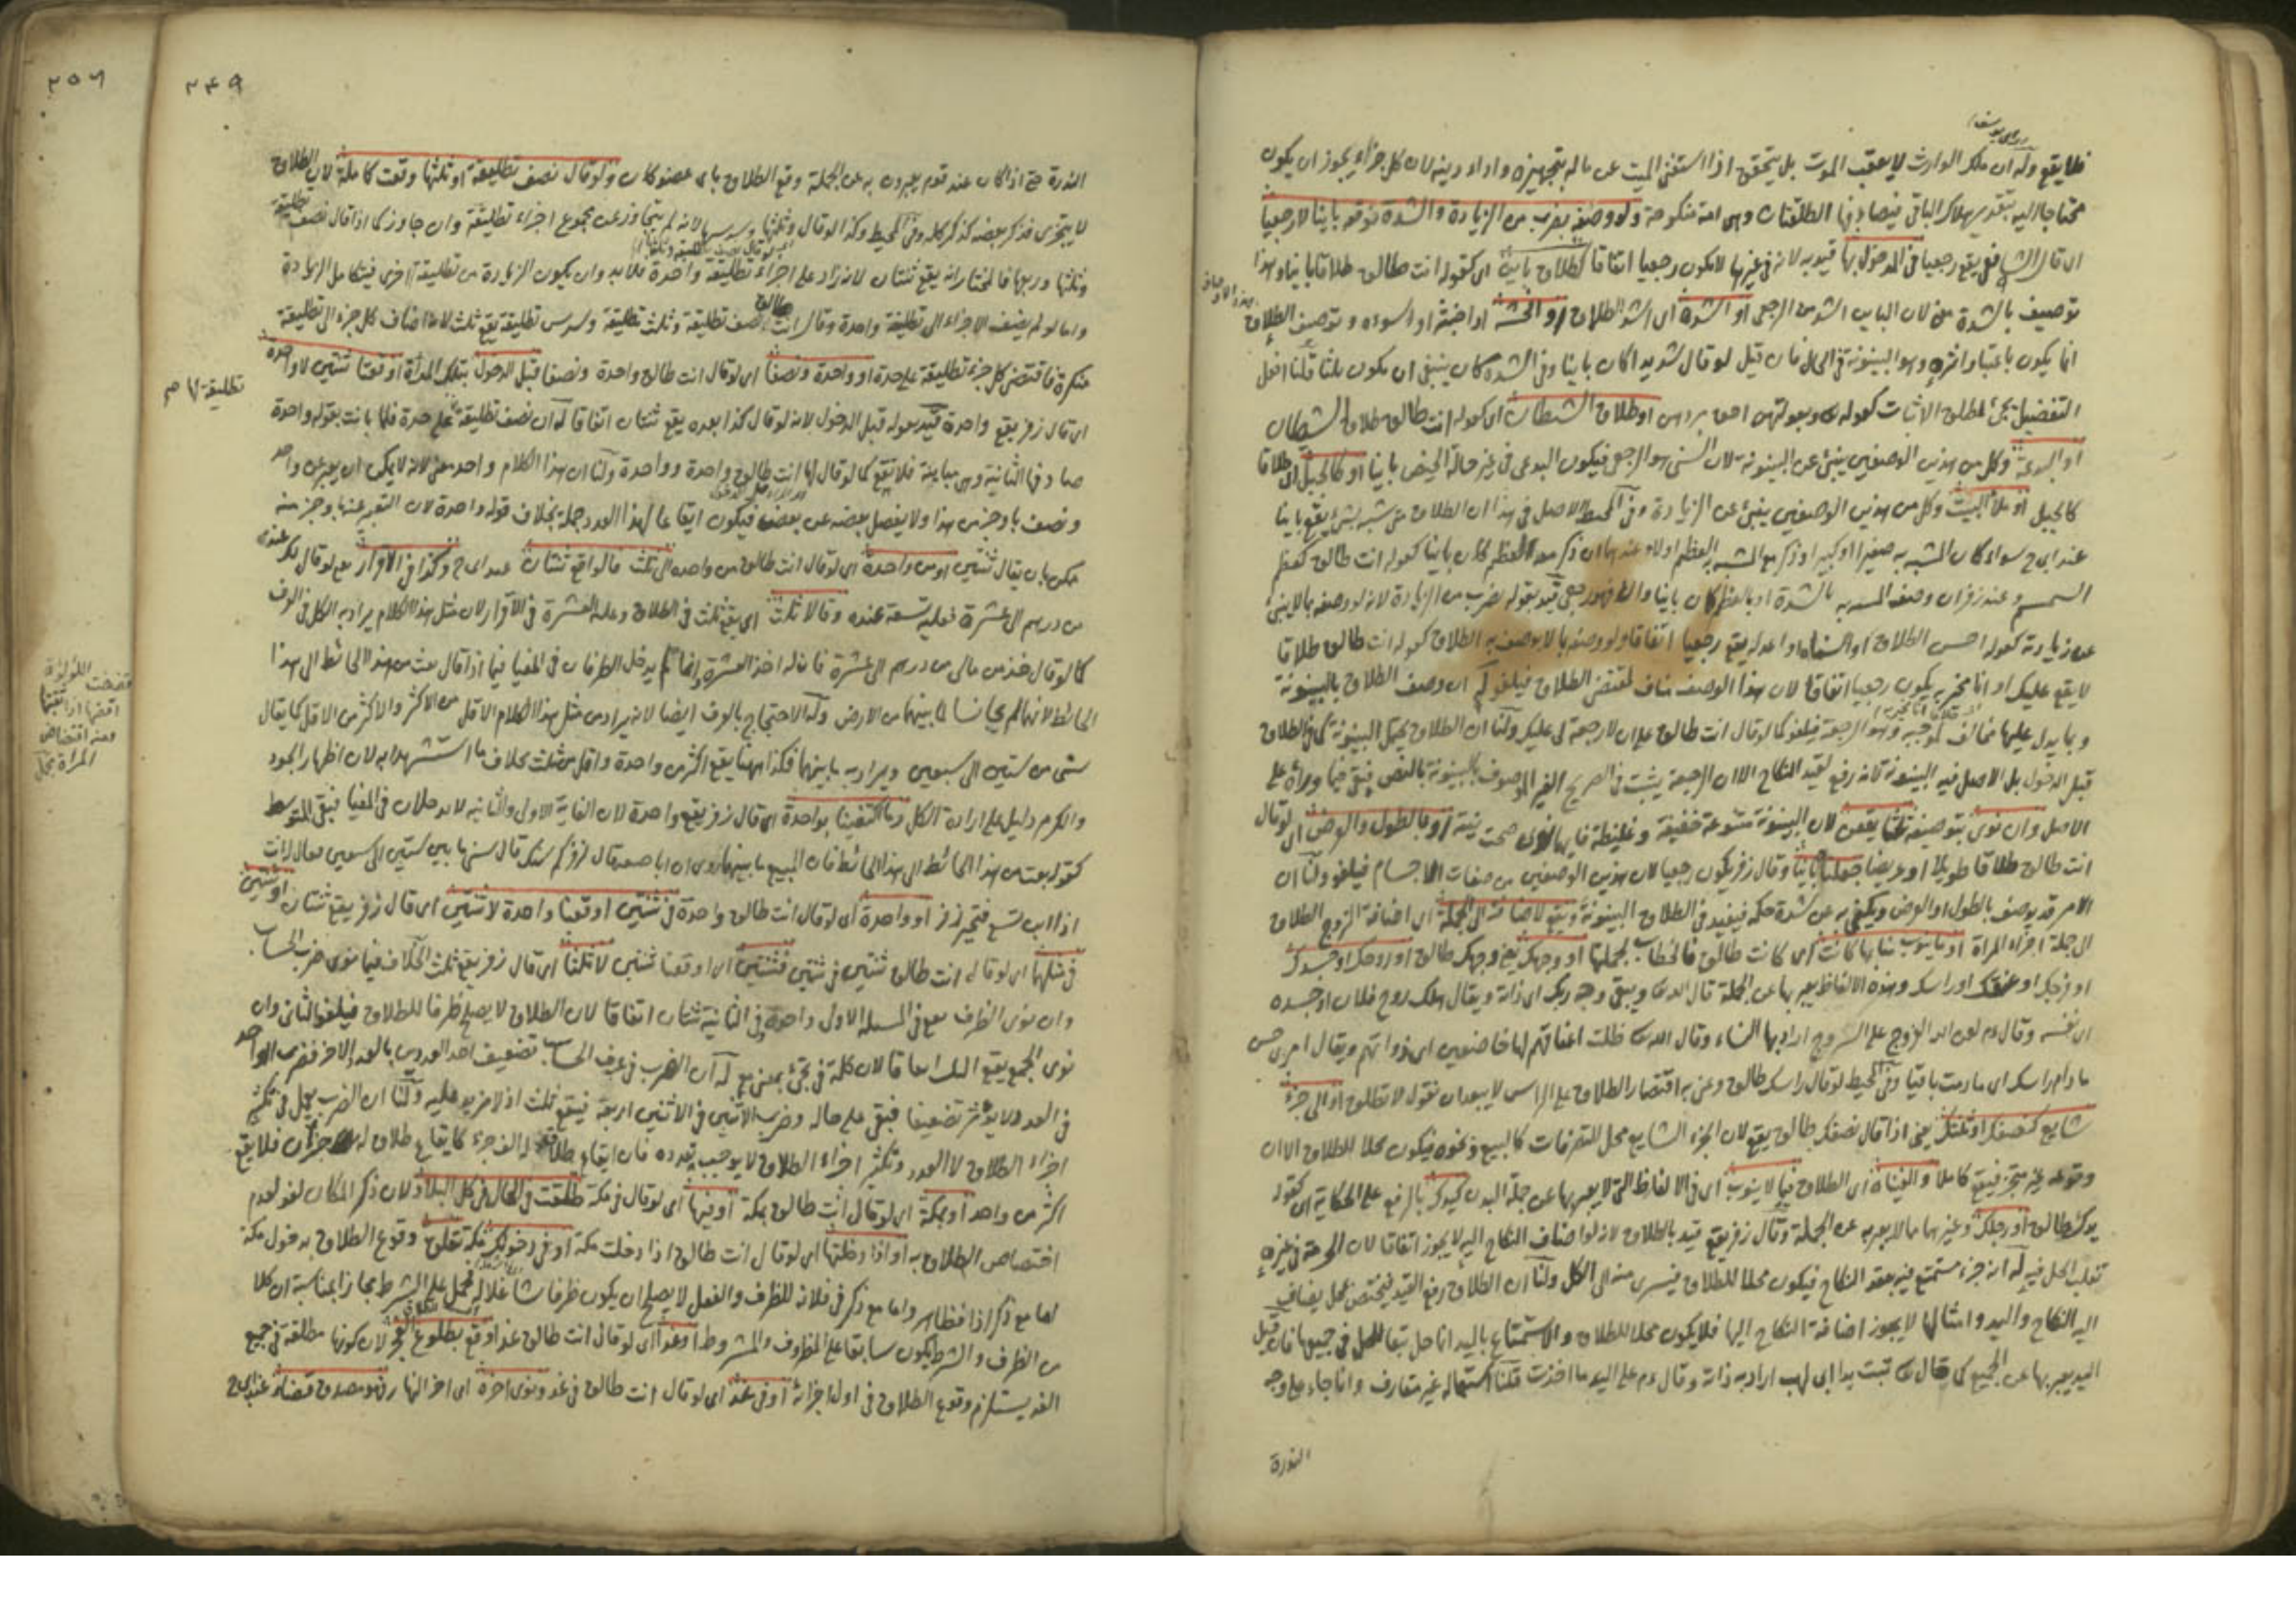 فلا يقع وله ان ملك الوارث لا يعقب الموت بل يتحقق اذا استغنى الميت عن ماله بتجهيزه واداء دينه لان كل جزء يجوز ان يكون
محتاجا اليه بتقدير هلاك الباقي فيصادفها الطلقتان وهى امة منكوحة ولو وصفه بضرب من الزيادة والشدة نوقعه باينا لا رجعيا
اى قال الشافعى يقع رجعيا فى المدخول بها قيد به لانه فى غيرها لا يكون رجعيا اتفاقا كطلاق باين اى كقوله انت طالق طلاقا باينا وهذا
توصيف بالشدة لان الباين اشد من الرجعى او اشده اى اشد الطلاق او افحشه او اخبثه او اسوءه وتوصيف الطلاق
انما يكون باعتبار اثره وهو البينونة فى الحال فان قيل لو قال شديدا كان باينا وفى اشده كان ينبغى ان يكون ثلثا قلنا افعل
التفضيل يجئ لمطلق الاثبات كقوله وبعولتهن احق بردهن او طلاق الشيطان اى كقوله انت طالق طلاق الشيطان
او البدعة وكل من هذين الوصفين ينبئ عن البينونة لان السنى هو الرجعى فيكون البدعى فى غير حالة الحيض باينا او كالجبل اى طلاقا
كالجبل او ملأ البيت وكل من هذين الوصفين ينبئ عن الزيادة وفى المحيط الاصل فى هذا ان الطلاق متى شبه بشئ يقع باينا
عند ابى ح سواء كان المشبه به صغيرا او كبيرا وذكر مع المشبه به العظم اولا وعندهما ان ذكر معه العظم كان باينا كقوله انت طالق كعظم
السمسم وعند زفر ان وصف المشبه به بالشدة او بالعظم كان باينا والا فهو رجعى قيد بقوله بضرب من الزيادة لانه لو وصفه بما لا ينبئ
عن زيادة كقوله احسن الطلاق او اسناه او اعدله يقع رجعيا اتفاقا ولو وصفه بما لا يوصف به الطلاق كقوله انت طالق طلاقا
لا يقع عليك او انا مخير يكون رجعيا اتفاقا لان هذا الوصف مناف لمقتضى الطلاق فيلغو لهم ان وصف الطلاق بالبينونة
وبما يدل عليها مخالف لموجبه وهو الرجعة فيلغو كما لو قال انت طالق على ان لا رجعة لى عليك ولنا ان الطلاق يحتمل البينونة كما فى الطلاق
قبل الدخول بل الاصل فيه البينونة لانه رفع لقيد النكاح الا ان الرجعة يثبت فى الصريح الغير الموصوف بالبينونة بالنص فبقى فيما وراه على
الاصل وان نوى بتوصيفه ثلثا يقعن لان البينونة متنوعة خفيفة وغليظة فايهما نوى صحت نيته او بالطول والعرض اى لو قال
انت طالق طلاقا طويلا او عريضا جعلناه باينا وقال زفر يكون رجعيا لان هذين الوصفين من صفات الاجسام فيلغو ولنا ان
الامر قد يوصف بالطول والعرض ويكنى به عن شدة حكمه فيفيد فى الطلاق البينونة ويقع لاضافته الى الجملة اى اضافة الزوج الطلاق
الى جملة اجزاء المراة او ما ينوب منابها كانت اى كانت طالق فالخطاب لجملتها او وجهك يعنى وجهك طالق او روحك او جسدك
او فرجك او عنقك او راسك وهذه الالفاظ يعبر بها عن الجملة قال الله ويبقى وجه ربك اى ذاته ويقال هلك روح فلان او جسده
اى نفسه وقال عم لعن الله الفروج على السروج اراد بها النساء وقال الله فظلت اعناقهم لها خاضعين اى ذواتهم ويقال امرى حسن
ما دام راسك اى ما دمت باقيا وفى المحيط لو قال راسك طالق وعنى به اقتصار الطلاق على الراس لا يبعد ان نقول لا تطلق او الى جزء
شايع كنصفك او ثلثك يعنى اذا قال نصفك طالق يقع لان الجزء الشايع محل للتصرفات كالبيع ونحوه فيكون محلا للطلاق الا ان
وقوعه غير متجز فيقع كاملا والغيناه اى الطلاق فيما لا ينوب اى فى الالفاظ التى لا يعبر بها عن جملة البدن كيدك بالرفع على الحكاية اى كقوله
يدك طالق او رجلك وغيرهما مما لا يعبر به عن الجملة وقال زفر يقع قيد بالطلاق لانه لو اضاف النكاح اليه لا يجوز اتفاقا لان الحرمة فى غيره
تغلب الحل فيه له انه جزء مستمتع فيه بعقد النكاح فيكون محلا للطلاق فيسرى منه الى الكل ولنا ان الطلاق رفع القيد فيختص بمحل يضاف
اليه النكاح واليد وامثالها لا يجوز اضافة النكاح اليها فلا يكون محلا للطلاق والاستمتاع باليد انما حل تبعا للحل فى جميعها فان قيل
اليد يعبر بها عن الجميع كما قال تبت يدا ابى لهب اراد به ذاته وقال عم على اليد ما اخذت قلنا استعماله غير متعارف وانما جاء على وجه
الندرة
٢٤٩
٢٥٦
الندرة حتى اذا كان عند قوم يعبرون به عن الجملة وقع الطلاق باى عضو كان ولو قال نصف تطليقة او ثلثها وقعت كاملة لان الطلاق
لا يتجزى فذكر بعضه كذكر كله وفى المحيط وكذا لو قال وثلثها وسدسها لانه لم يتجاوز عن مجموع اجزاء تطليقة وان جاوز كما اذا قال نصف تطليقة
وثلثها وربعها فالمختار انه يقع ثنتان لانه زاد على اجزاء تطليقة واحدة فلا بد وان يكون الزيادة من تطليقة اخرى فيتكامل الزيادة
واما لو لم يضف الاجزاء الى تطليقة واحدة وقال انت طالق نصف تطليقة وثلث تطليقة وسدس تطليقة يقع ثلث لانه اضاف كل جزء الى تطليقة
منكرة فاقتضى كل جزء تطليقة على حدة او واحدة ونصفا اى لو قال انت طالق واحدة ونصفا قبل الدخول بتلك المراة اوقعنا ثنتين لا واحدة
اى قال زفر يقع واحدة قيد بقوله قبل الدخول لانه لو قال كذا بعده يقع ثنتان اتفاقا له ان نصف تطليقة على حدة فلما بانت بقوله واحدة
تطليقة لها م
صادفها الثانية وهى مباينة فلا تقع كما لو قال لها انت طالق واحدة وواحدة ولنا ان هذا الكلام واحد معنى لانه لا يمكن ان يعبر عن واحد
ونصف باوجز من هذا ولا يفصل بعضه عن بعض فيكون ايقاعا لهذا العدد جملة بخلاف قوله واحدة لان التعبير عنها باوجز منه
ممكن بان يقال ثنتين او من واحدة اى لو قال انت طالق من واحدة الى ثلث فالواقع ثنتان عند ابى ح وكذا فى الاقرار يعنى لو قال لك عندى
من درهم الى عشرة فعليه تسعة عنده وقالا ثلث اى يقع ثلث فى الطلاق وعليه العشرة فى الاقرار لان مثل هذا الكلام يراد به الكل فى العرف
كما لو قال خذ من مالى من درهم الى عشرة فانه له اخذ العشرة وانما لم يدخل الطرفان فى المغيا فيما اذا قال بعت من هذا الحائط الى هذا
الحائط لانهما لم يجانسا ما بينهما من الارض وله الاحتجاج بالعرف ايضا لانه يراد من مثل هذا الكلام الاقل من الاكثر والاكثر من الاقل كما يقال
سنى من ستين الى سبعين ويراد به ما بينهما فكذا ههنا يقع اكثر من واحدة واقل من ثلث بخلاف ما استشهدا به لان اظهار الجود
والكرم دليل على ارادة الكل وما اكتفينا بواحدة اى قال زفر يقع واحدة لان الغاية الاولى والثانية لا يدخلان فى المغيا فبقى المتوسط
كقوله بعت من هذا الحائط الى هذا الحائط فان المبيع ما بينهما روى ان ابا حنيفة قال لزفر كم سنك قال سنى ما بين ستين الى سبعين فقال انت
اذا ابن تسع فتحير زفر او واحدة اى لو قال انت طالق واحدة فى ثنتين اوقعنا واحدة لا ثنتين اى قال زفر يقع ثنتان او ثنتين
فى مثلها اى لو قال انت طالق ثنتين فى ثنتين فثنتين اى اوقعنا ثنتين لا ثلثا اى قال زفر يقع ثلث الخلاف فيما نوى ضرب الحساب
وان نوى الظرف يقع فى المسئلة الاولى واحدة وفى الثانية ثنتان اتفاقا لان الطلاق لا يصلح ظرفا للطلاق فيلغو الثانى وان
نوى الجمع يقع الثلث اتفاقا لان كلمة فى تجئ بمعنى مع له ان الضرب فى عرف الحساب تضعيف احد العددين بالعدد الاخر فضرب الواحد
فى العدد لا يؤثر تضعيفا فبقى على حاله وضرب الاثنين فى الاثنين اربعة فيقع ثلث اذ لا مزيد عليه ولنا ان الضرب يعمل فى تكثير
اجزاء الطلاق لا العدد وتكثير اجزاء الطلاق لا يوجب تعدده فان ايقاع طلاق له الف جزء كايقاع طلاق له جزآن فلا يقع
اكثر من واحد او بمكة اى لو قال انت طالق بمكة او فيها اى لو قال فى مكة طلقت فى الحال فى كل البلاد لان ذكر المكان لغو لعدم
اختصاص الطلاق به او اذا دخلتها اى لو قال انت طالق اذا دخلت مكة او فى دخولك مكة تعلق وقوع الطلاق بدخول مكة
اما مع ذكر اذا فظاهر واما مع ذكر فى فلانه للظرف والفعل لا يصلح ان يكون ظرفا شاغلا له فحمل على الشرط مجازا لمناسبة ان كلا
من الظرف والشرط يكون سابقا على المظروف والمشروط او غدا اى لو قال انت طالق غدا وقع بطلوع الفجر لان كونها مطلقة فى جميع
الغد يستلزم وقوع الطلاق فى اول اجزائه او فى غد اى لو قال انت طالق فى غد ونوى اخره اى اخر النهار فهو مصدق قضاء عند ابى ح